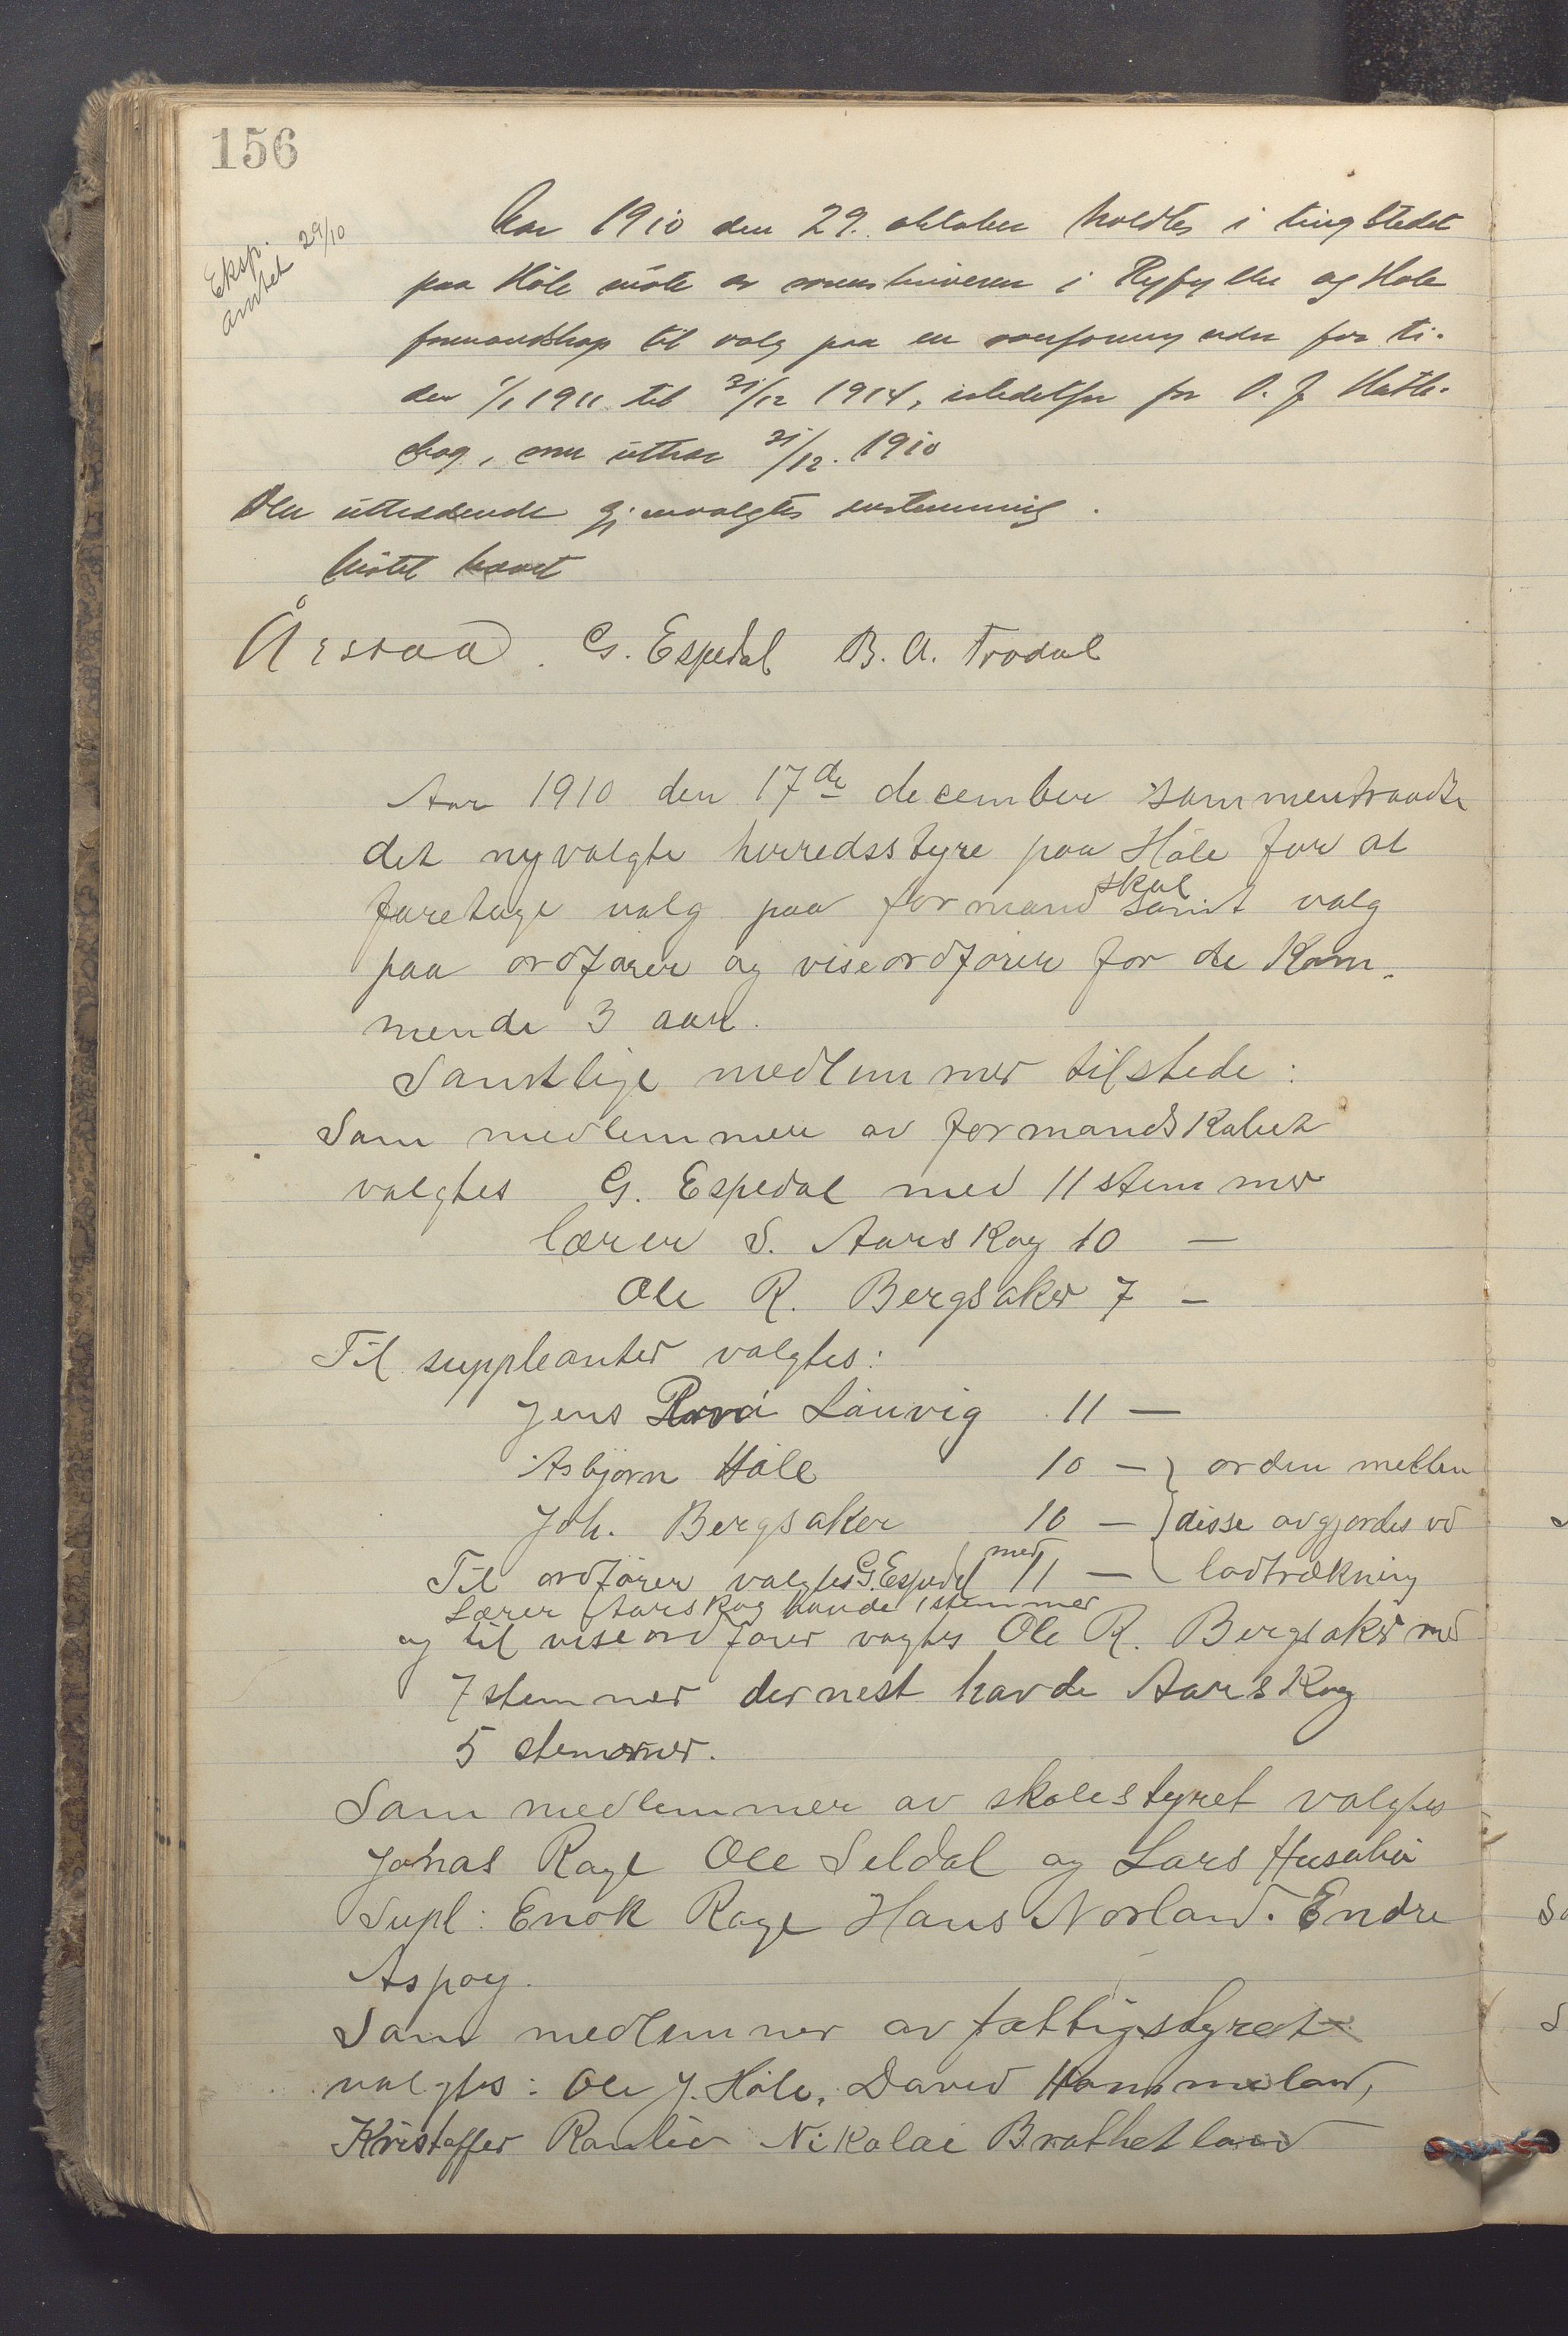 156
Eksp.
amtet 29/10
Aar 1910 den 29. oktober holdtes i tingstedet
paa Høle møte av sorenskriveren i Ryfylke og Høle
formandskap til valg paa en overformynder for ti-
den 1/1 1911 til 31/12 1914, istedetfor O. J.
skog, som uttrær 31/12. 1910
Den uttrædende gjenvalgtes enstemmig.
Møtet hævet
G. Espedal B. A. Trodal
Aar 1910 den 17de december sammentraadte
det nyvalgte herredsstyre paa Høle for at
foretage valg paa formandskal samt valg
paa ordfører og viseordfører for de kom-
mende 3 aar.
Samtlige medlemmer tilstede:
Som medlemmer av formandskabet
valgtes G. Espedal med 11 stemmer
lærer S. Aarskog 10 —
Ole R. Bergsaker 7 —
Til suppleanter valgtes:
Jens Lauvig 11 —
Asbjørn Høle 10 — } orden mellem
Joh. Bergsaker 10 — } disse avgjordes ved
Til ordfører valgtes G. Espedal med 11 — lodtrækning
Lærer Aarskog havde 1 stemmer
og til viseordfører vagtes Ole R. Bergsaker med
7 stemmer dernest havde Aarskog
5 stemmer.
Som medlemmer av skolestyret valgtes
Jonas Rage Ole Seldal og Lars Husebø
Supl: Enok Rage Hans Norland. Endre
Aspøy.
Som medlemmer av fattigstyret
valgtes: Ole J. Høle, David Hommeland,
Kristoffer Ramlid Nikolai Brathetland